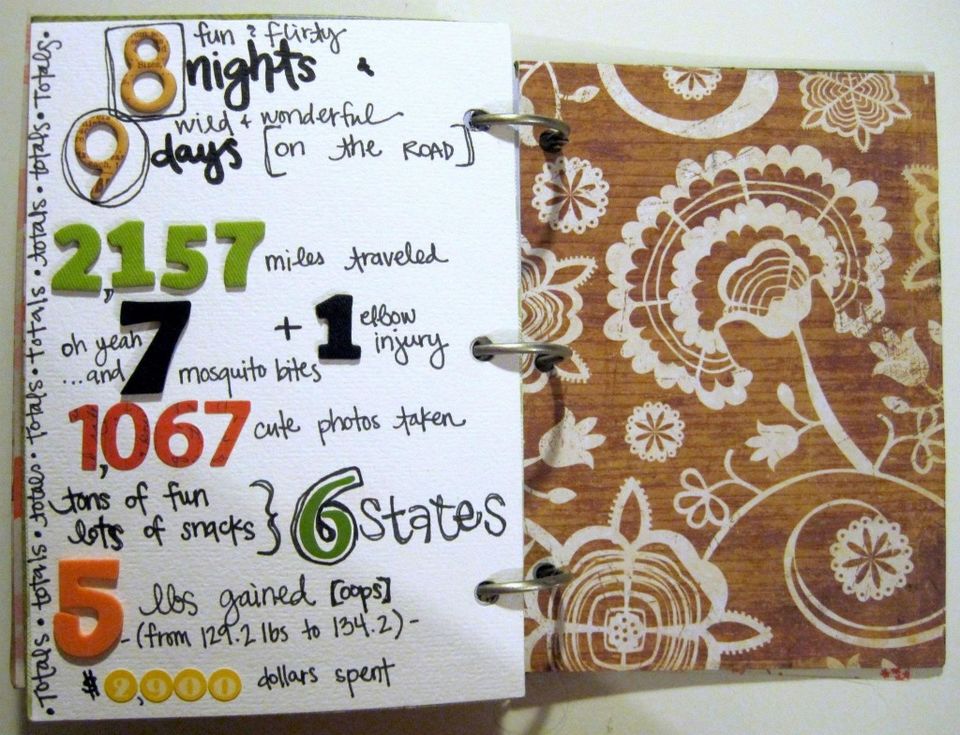 8 fun & flirty
nights &
9 wild + wonderful
days [on the ROAD]
2,157 miles traveled
oh yeah
...and 7 mosquito bites
+ 1 elbow
injury
1,067 cute photos taken
tons of fun
lots of snacks } 6 states
5 lbs gained [oops]
-(from 129.2 lbs to 134.2)-
$2,900 dollars spent
•Totals•totals•totals•totals•Totals•Totals•Totals•totals•totals•Totals•